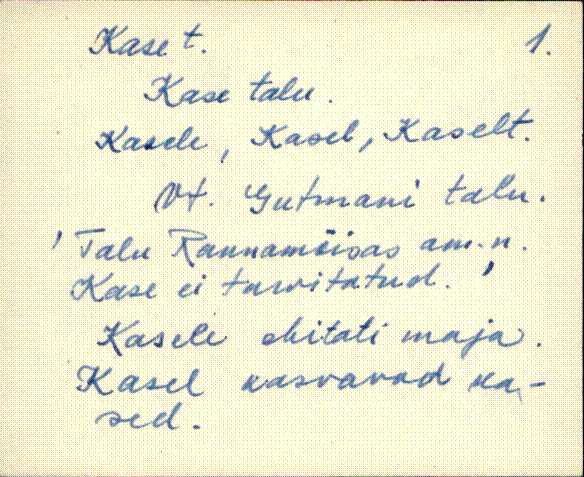 Kase t. 1.
Kase talu.
Kasele, Kasel, Kaselt.
Vt. Gutmani talu.
'Talu Rannamõisas am. n.
Kase ei tarvitatud.'
Kasele ehitati maja.
Kasel kasvavad ka-
sed.